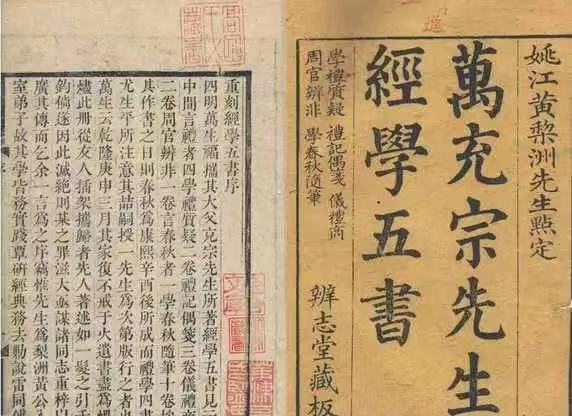 姚江黃棃洲先生點定
萬充宗先生
經學五書
學禮質疑 禮記偶箋 儀禮商
周官辨非 學春秋隨筆
辨志堂藏板
重刻經學五書序
四明萬生福搢其大父充宗先生所著經學五書見
中間言禮者四學禮質疑二卷禮記偶箋三卷儀禮商
二卷周官辨非一卷言春秋者一學春秋隨筆十卷按
其作書之目則春秋爲康熙辛酉後所成而禮學四書
尤生平所注意其喆嗣授一先生爲次第版行之者也
萬生云乾隆庚申三月其家復不戒于火遺書盡爲煨
燼此册從友人插架攜歸者先人著述如一髮之引千
鈞倘遂因此滅絶則某之罪滋大亟謀諸同志重梓以
廣其傳而乞余一言爲之序竊惟先生爲梨洲黃公入
室弟子故其學皆務實踐覃硏經典務去勦說雷同傅